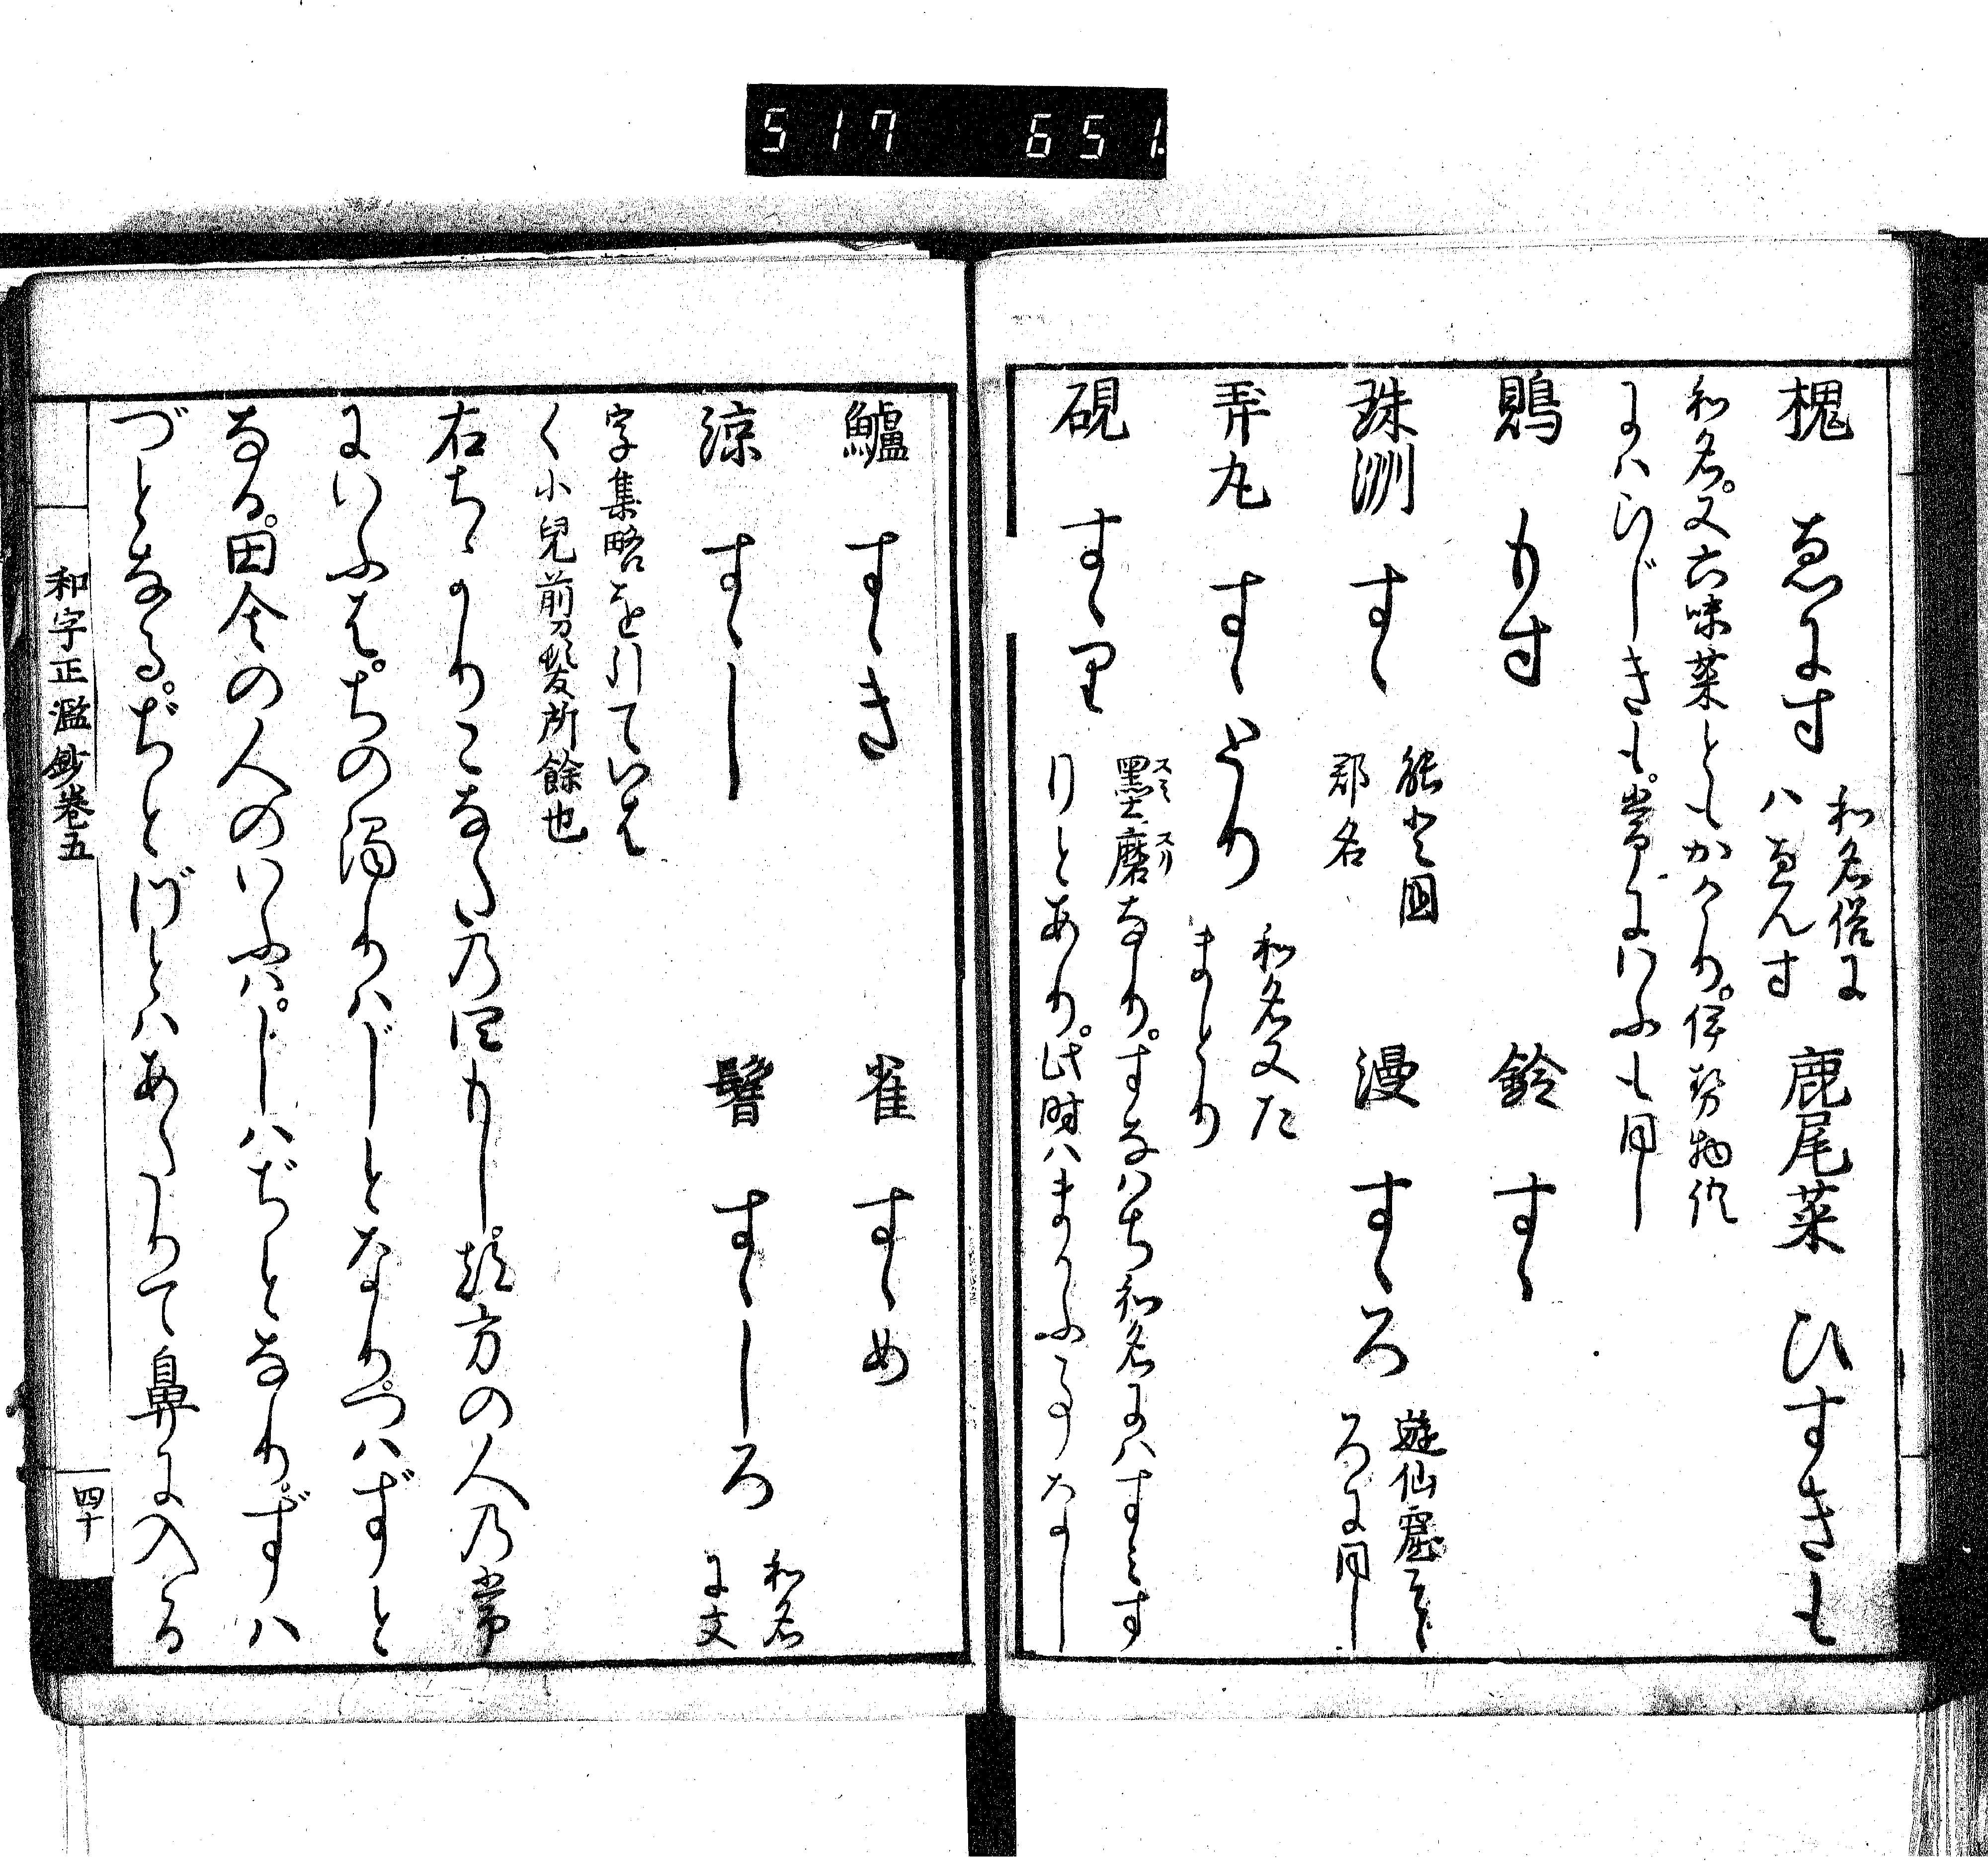 517 651
槐 ゑにす 和名俗に
ハゑんす 鹿尾菜 ひすきも
和名。又六味菜ともかけり。伊勢物語
にハひじきも。常にいふも同し
鵙 もす 鈴 すゝ
珠洲 すゝ 能登国
郡名 漫 すゝろ 遊仙窟そゝ
ろに同し
弄丸 すゝとり 和名又た
まとり
硯 すゝり 墨磨なり。すなハち和名にハすミす
スミ スリ
りとあり。此時ハまかふ事なし
鱸 すゝき 雀 すゝめ
涼 すゝし 髻 すゝしろ 和名
に文
字集略を引ていはく
く小兒前髪所餘也
右ちゝかりこなゝ乃四もし。都方の人乃常
にいふは。ちの濁りハじとなり。つハずと
なる。田舎の人のいふハ。しハぢとなり。ずハ
づとなる。ぢとづとハあたりて鼻に入る
和字正濫鈔巻五
四十